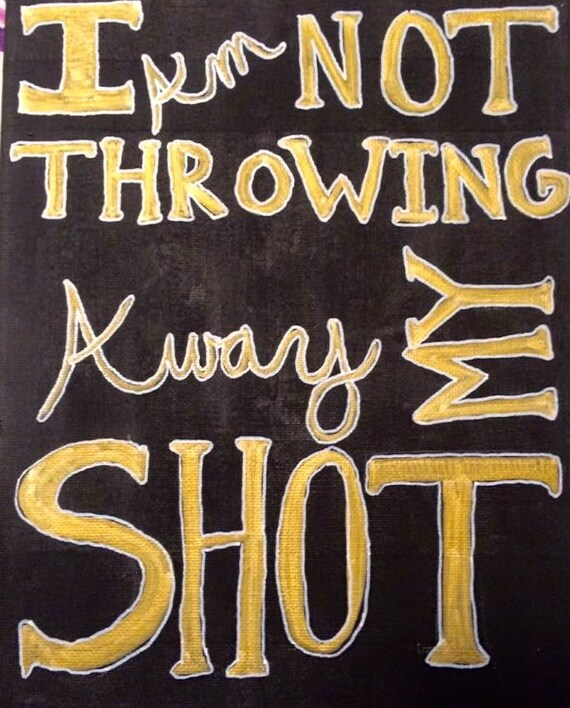 I Am NOT
THROWING
Away MY
SHOT